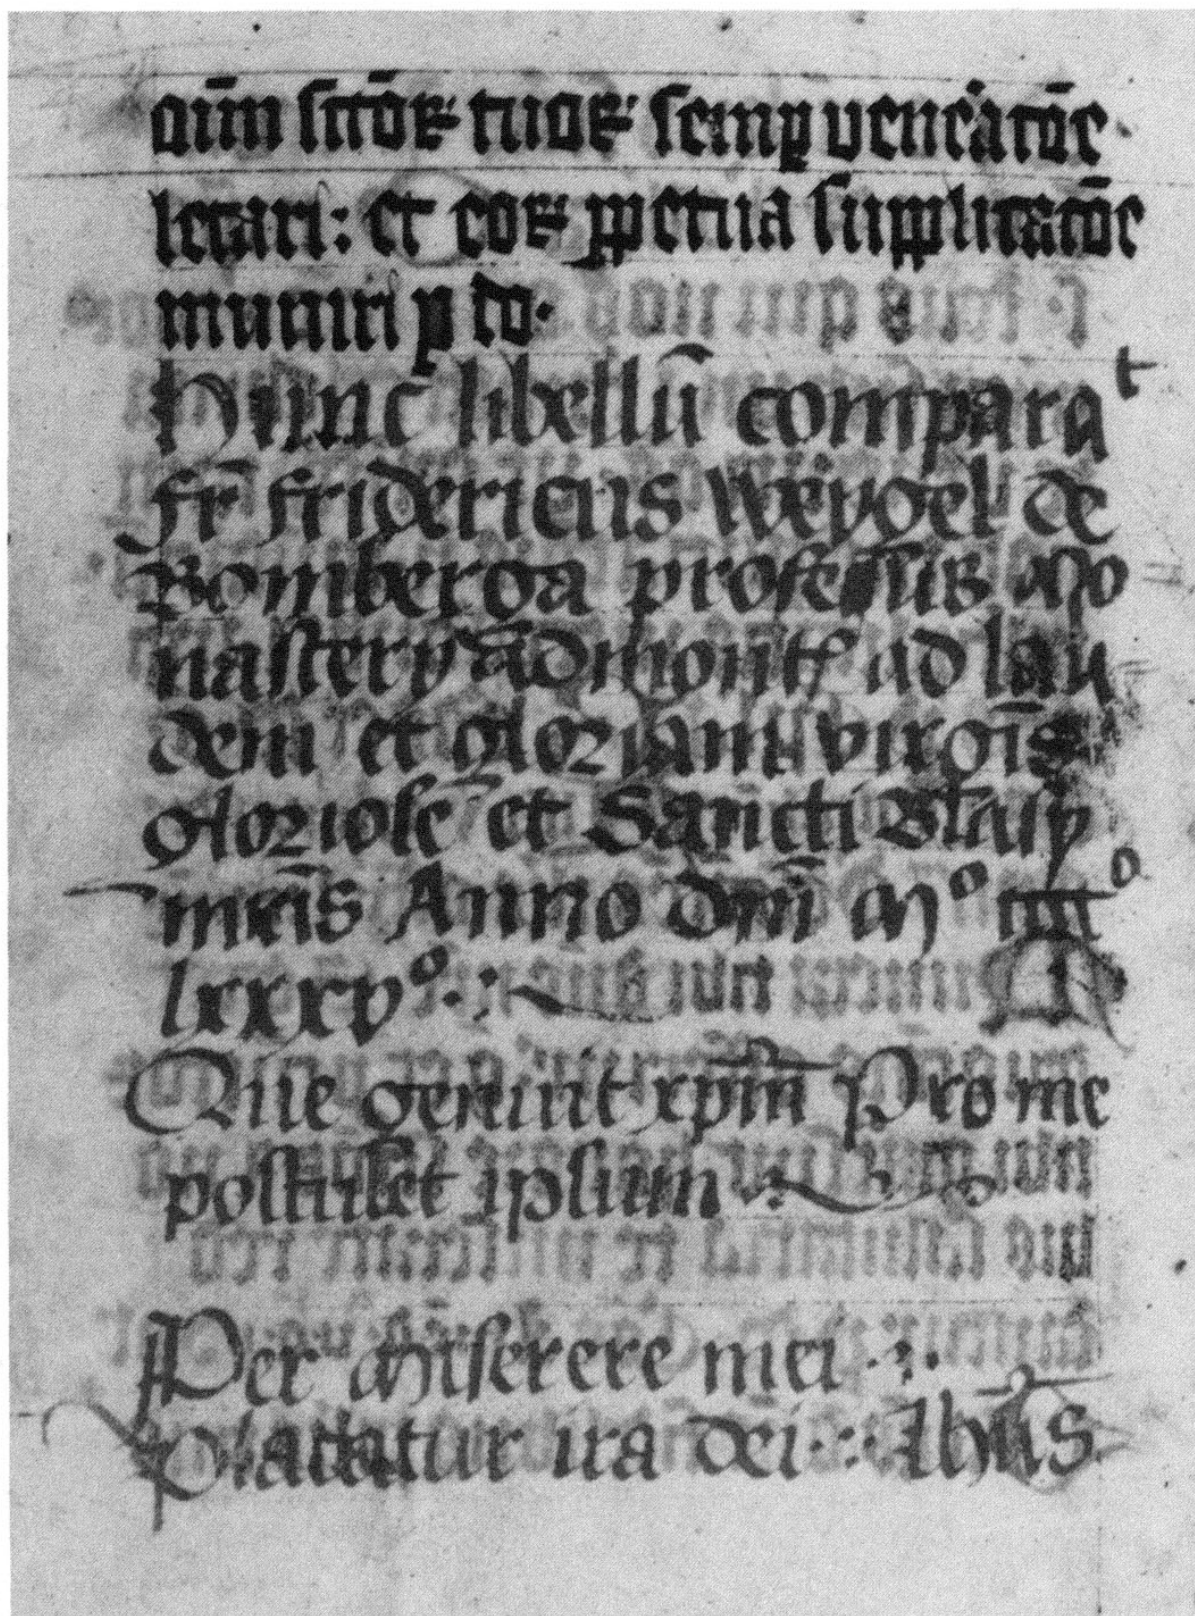 oīm sctōꝝ tuoꝝ semꝑ veneratōe
letari: et eoꝝ ꝑpetua supplicatōe
muniri ꝑ do·
Hunc libellū comparat
fr̄ fridericus Weygel de
Bomberga professus Mo
nastery Admont ad lau
dem et gloriam virgīs
gloriose et Sancti Blasy
Anno dn̄i Mº iiiiº
lxxxvº ·:
Que genuit xp̄m Pro me
postulet ipsum
Per Miserere mei ·:·
placatur ira dei ·:· Ihūs